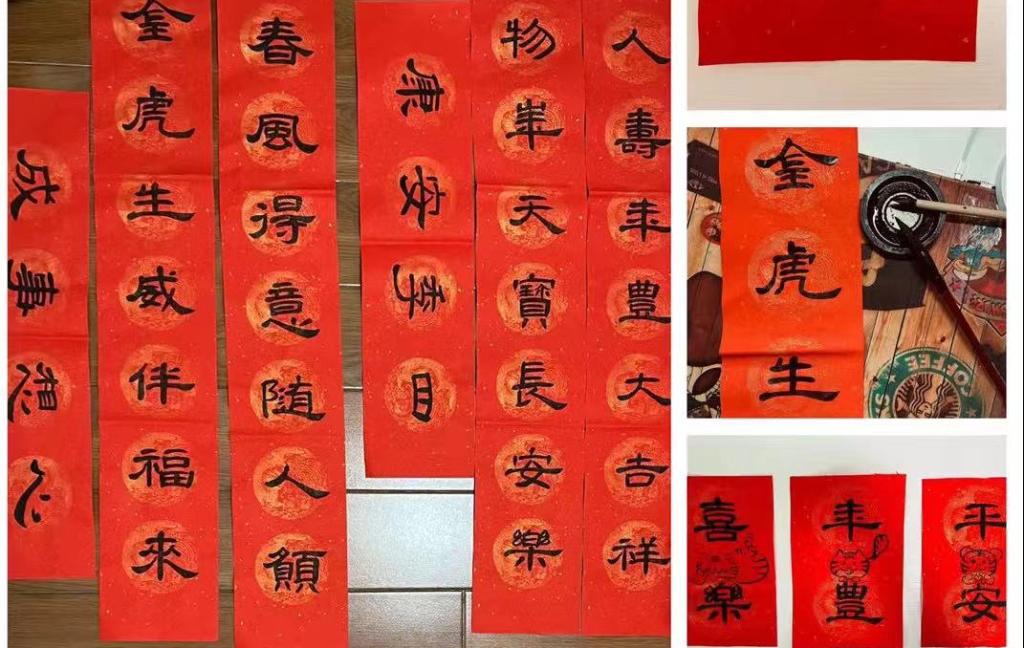 心想事成
金虎生威伴福來
春風得意随人願
四季安康
物華天寶長安樂
人壽年豊大吉祥
金虎生
COFFEE
喜樂
年豊
平安